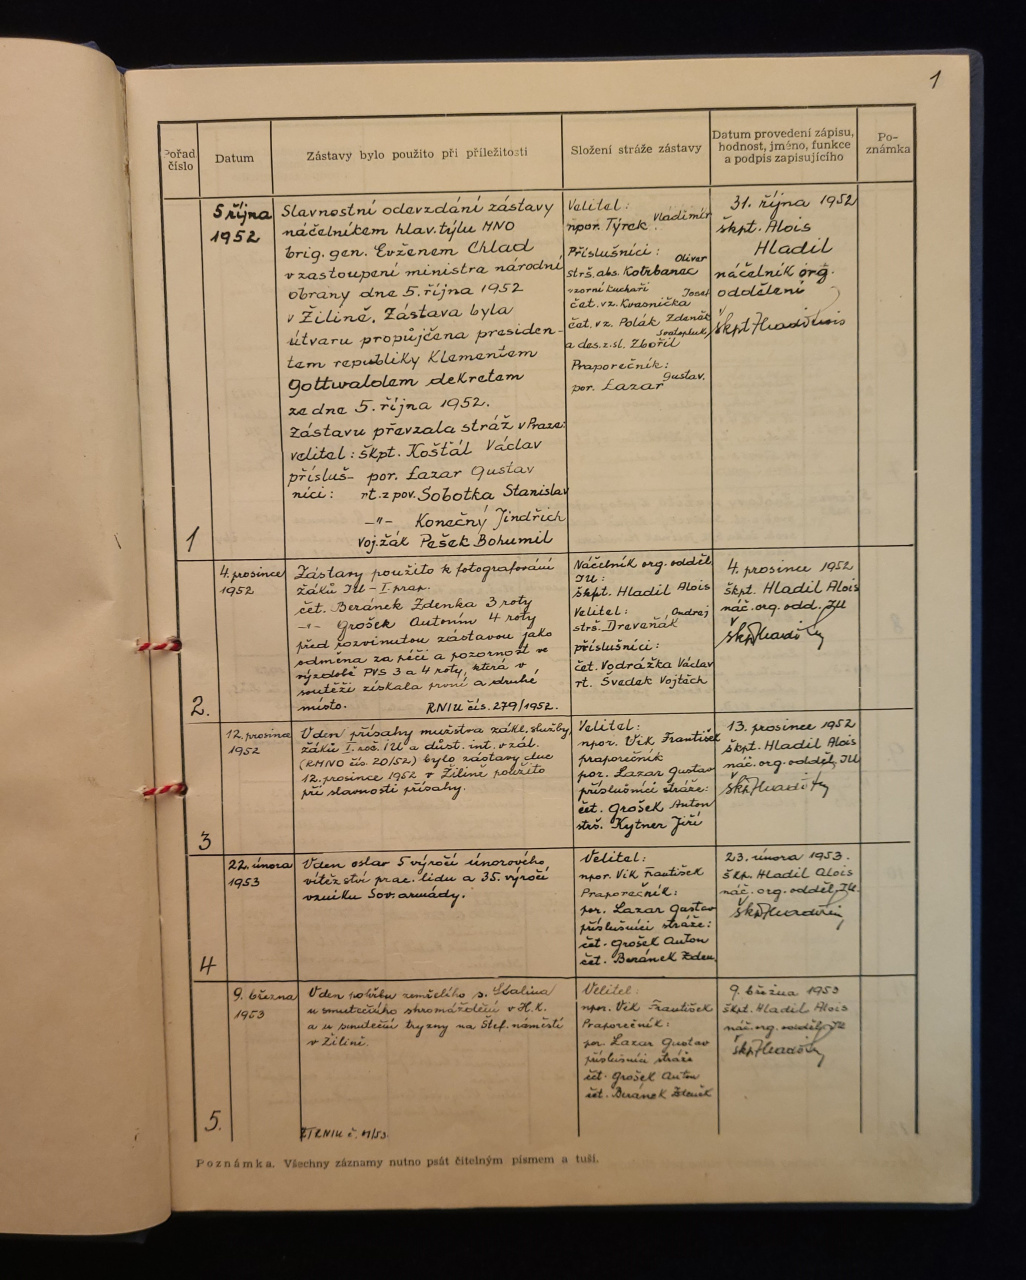 1
Pořad číslo
Datum
Zástavy bylo použito při příležitosti
Složení stráže zástavy
Datum provedení zápisu,
hodnost, jméno, funkce
a podpis zapisujícího
Po-
známka
1
5 října
1952
Slavnostní odevzdání zástavy
náčelníkem hlav. týlu MNO
brig. gen. Evženem Chlad
v zastoupení ministra národní
obrany dne 5. října 1952
v Žilině. Zástava byla
útvaru propůjčena presiden-
tem republiky Klementem
Gottwaldem dekretem
ze dne 5. října 1952.
Zástavu převzala stráž v Praze:
velitel: škpt. Košťál Václav
přísluš- por. Lazar Gustav
níci: rt. z pov. Sobotka Stanislav
-"- Konečný Jindřich
voj. žák Pešek Bohumil
Velitel:
npor. Týrek Vladimír
Příslušníci:
strš. abs. Kotrbanec Oliver
vzorní kuchaři
čet. vz. Kvasnička Josef
čet. vz. Polák Zdeněk
a des. z. sl. Zbořil Svatopluk
Praporečník:
por. Lazar Gustav.
31. října 1952
škpt. Alois
Hladil
náčelník org.
oddělení
2.
4. prosince
1952
Zástavy použito k fotografování
žáků IU - I. prap.
čet. Beránek Zdenka 3 roty
-"- Grošek Antonín 4 roty
před rozvinutou zástavou jako
odměna za péči a pozornost ve
výzdobě PVS 3 a 4 roty, která v
soutěži získala první a druhé
místo. RNIU čís. 279/1952.
Náčelník org. odděl.
IU:
škpt. Hladil Alois
Velitel:
strš. Dreveňák Ondrej
příslušníci:
čet. Vodrážka Václav
rt. Švedek Vojtěch
4. prosince 1952
škpt. Hladil Alois
náč. org. odd. IU
3
12. prosince
1952
V den přísahy mužstva zákl. služby,
žáků I. roč. IU a důst. int. v zál.
(RMNO čís. 20/52) bylo zástavy dne
12. prosince 1952 v Žilině použito
při slavnosti přísahy.
Velitel:
npor. Vik František
praporečník
por. Lazar Gustav
příslušníci stráže:
čet. Grošek Anton
strš. Kytner Jiří
13. prosince 1952
škpt. Hladil Alois
náč. org. odděl. IU
4
22. února
1953
V den oslav 5 výročí únorového
vítězství prac. lidu a 35. výročí
vzniku Sov. armády.
Velitel:
npor. Vik František
Praporečník:
por. Lazar Gustav
příslušníci stráže:
čet. Grošek Anton
čet. Beránek Zden.
23. února 1953.
škp. Hladil Alois
náč. org. odděl. IU.
5.
9. března
1953
V den pohřbu zemřelého s. Stalina
u smutečního shromáždění v H.K.
a u smuteční tryzny na Štef. náměstí
v Žilině.
ZTRNIU č. 11/53.
Velitel:
npor. Vik František
Praporečník:
por. Lazar Gustav
příslušníci stráže
čet. Grošek Anton
čet. Beránek Zdeněk
9. března 1953
škpt. Hladil Alois
náč. org. odděl. IU
Poznámka. Všechny záznamy nutno psát čitelným písmem a tuší.